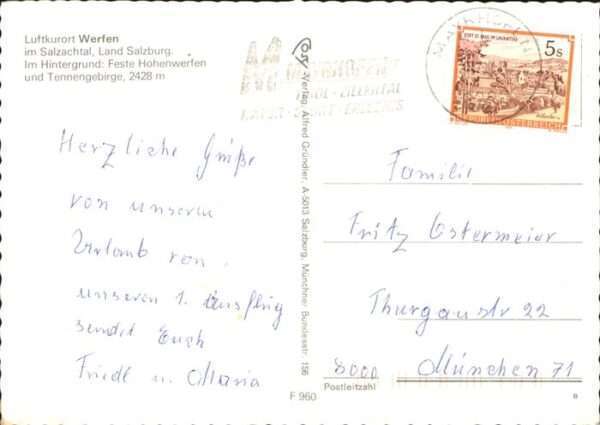 Luftkurort Werfen
im Salzachtal, Land Salzburg.
Im Hintergrund: Feste Hohenwerfen
und Tennengebirge, 2428 m
Herzliche Grüße
von unserm
Urlaub von
unseren 1. Ausflug
sendet Euch
Friedl u. Maria
Verlag Alfred Gründler, A-5013 Salzburg, Münchner Bundesstr. 156
F 960
5 S
Familie
Fritz Ostermeier
Thurgaustr 22
8000 München 71
Postleitzahl